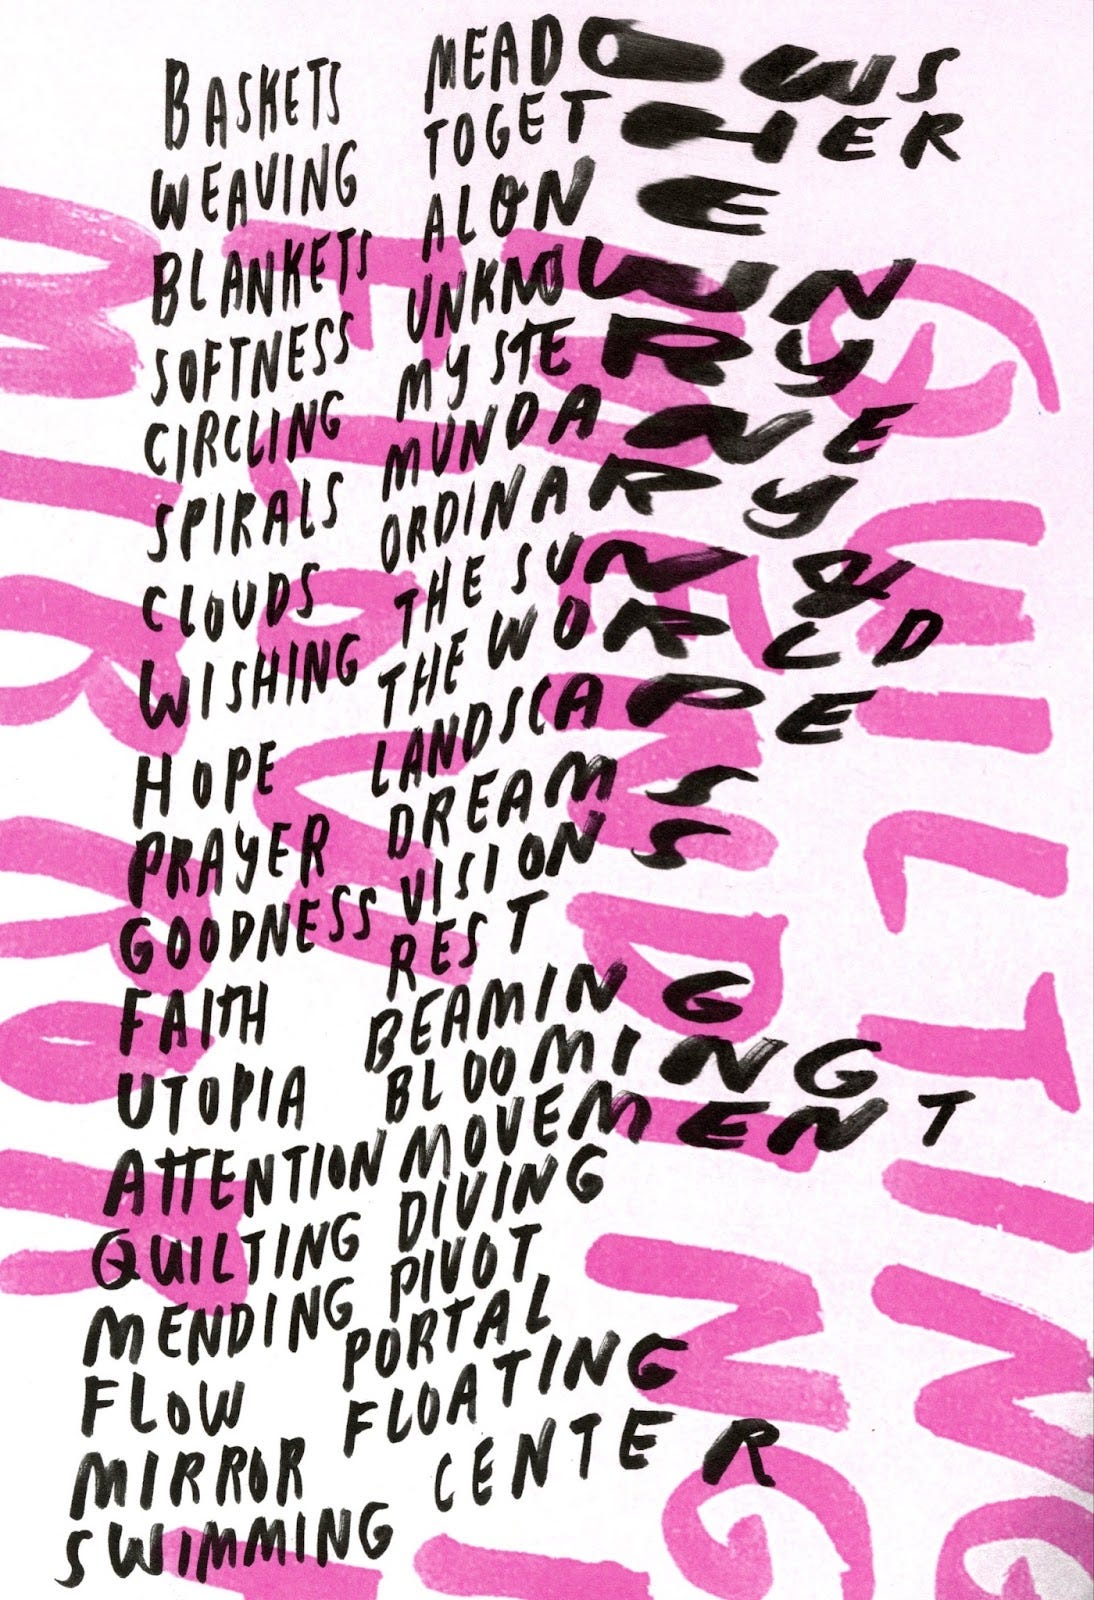 BASKETS
WEAVING
BLANKETS
SOFTNESS
CIRCLING
SPIRALS
CLOUDS
WISHING
HOPE
PRAYER
GOODNESS
FAITH
UTOPIA
ATTENTION
QUILTING
MENDING
FLOW
MIRROR
SWIMMING
MEADOWS
TOGETHER
ALONE
UNKNOWN
MYSTERY
MUNDANE
ORDINARY
THE SUN &
THE WORLD
LANDSCAPE
DREAMS
VISIONS
REST
BEAMING
BLOOMING
MOVEMENT
DIVING
PIVOT
PORTAL
FLOATING
CENTER
QUILTING
MENDING
MIRROR